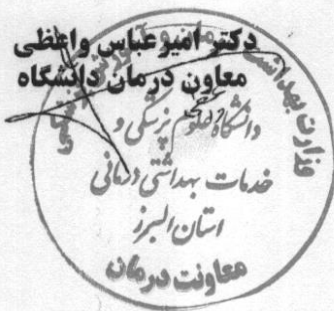 دکتر امیرعباس واعظی
معاون درمان دانشگاه
وزارت بهداشت
دانشگاه علوم پزشکی و
خدمات بهداشتی درمانی
استان البرز
معاونت درمان